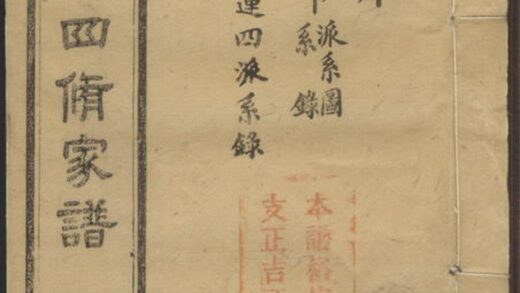 派系圖
系錄
四派系錄
本譜裕
支正吉
四脩家譜